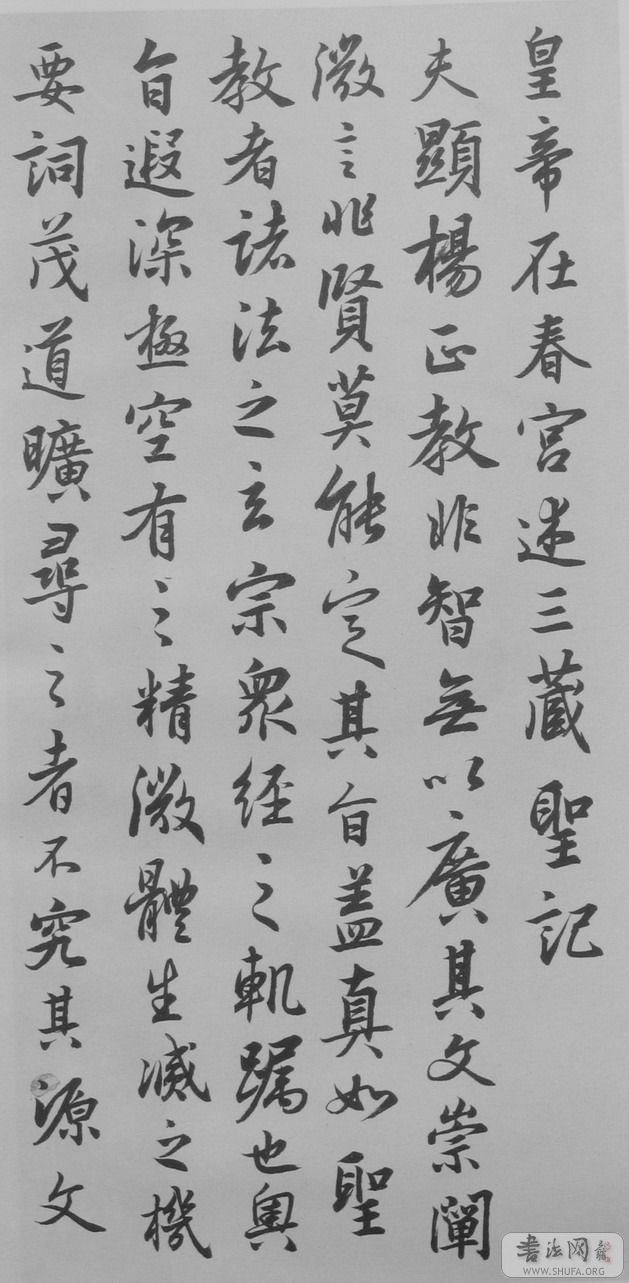 皇帝在春宮述三藏聖記
夫顯楊正教非智無以廣其文崇闡
微言非賢莫能定其旨盖真如聖
教者諸法之玄宗衆經之軌躅也奥
旨遐深極空有之精微體生滅之機
要詞茂道曠尋之者不究其源文
書法网
WWW.SHUFA.ORG